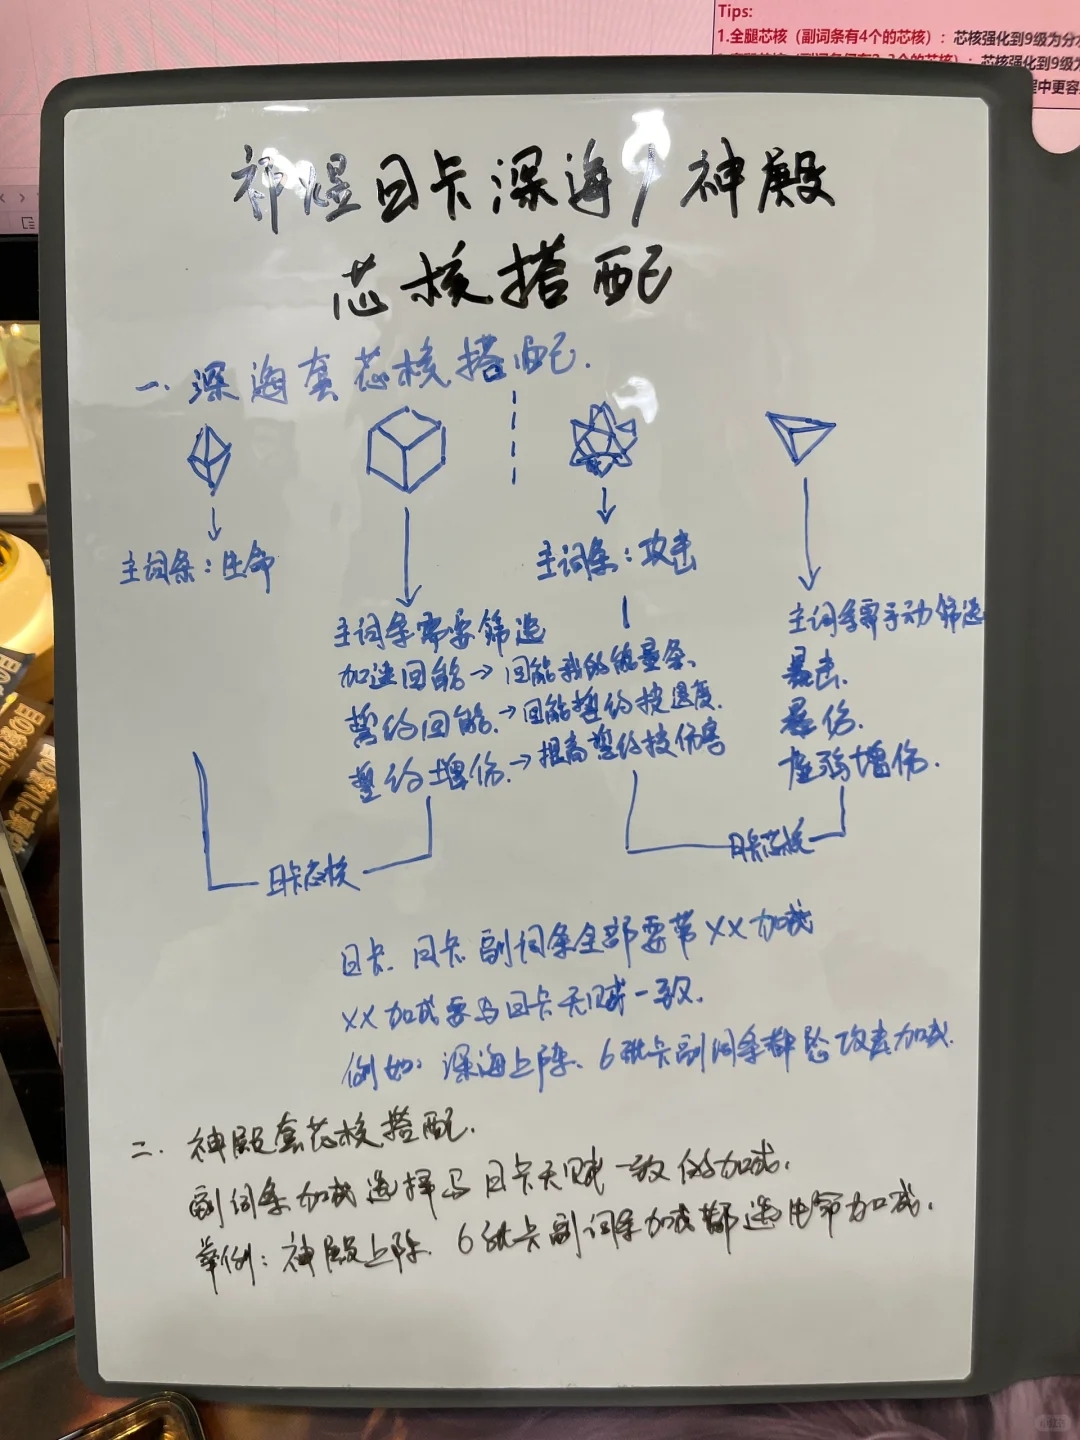 Tips:
1.全腿芯核（副词条有4个的芯核）：芯核强化到9级为分水
芯核强化到9级为
程中更容
神煜日卡深海/神殿
芯核搭配
一.深海套芯核搭配.
主词条：生命
主词条：攻击
主词条需要筛选
加速回能→回能我的能量条.
誓约回能.→回能誓约技进度.
誓约增伤.→提高誓约技伤害
主词条需手动筛选
暴击.
暴伤.
虚弱增伤.
日卡芯核
日卡芯核
日卡.月卡副词条全部要带XX加成
XX加成要与日卡天赋一致.
例如：深海上阵.6张卡副词条都选攻击加成.
二.神殿套芯核搭配.
副词条加成选择与日卡天赋一致的加成.
举例：神殿上阵.6张卡副词条加成都选生命加成.